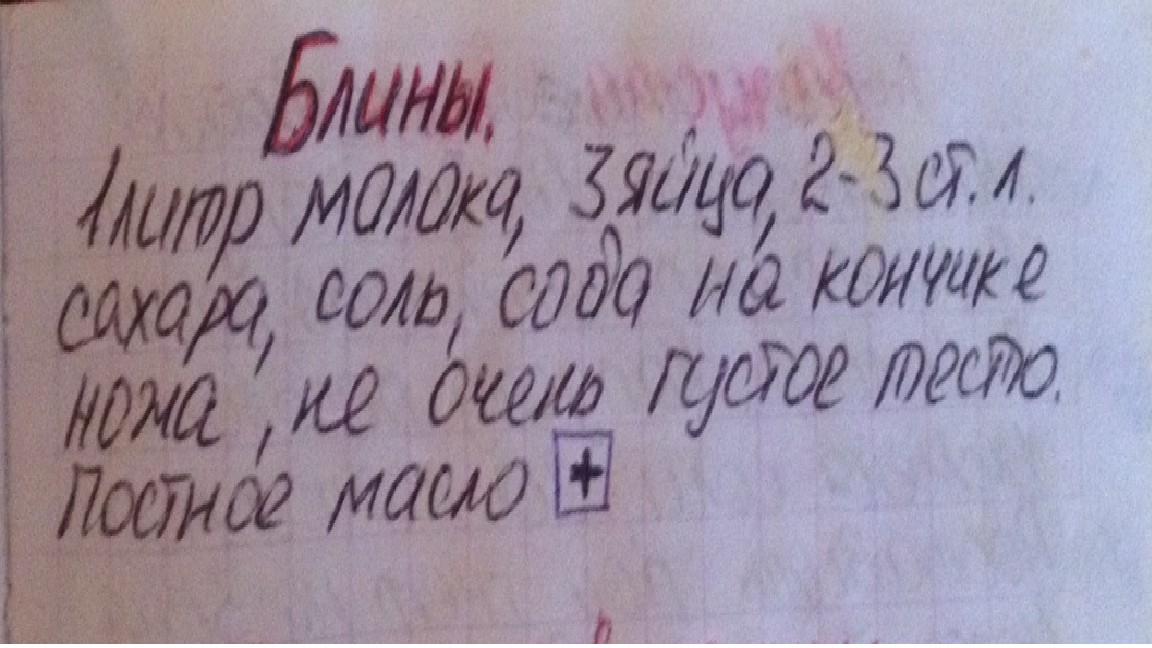 Блины.
1 литр молока, 3 яйца, 2-3 ст. л.
сахара, соль, сода на кончике
ножа, не очень густое тесто.
Постное масло +